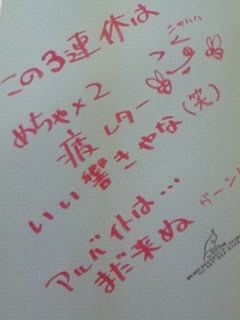 この3連休は
めちゃ×2
疲レター
いい響きやな(笑)
アルバイトは…
まだ来ぬ
ガーン!